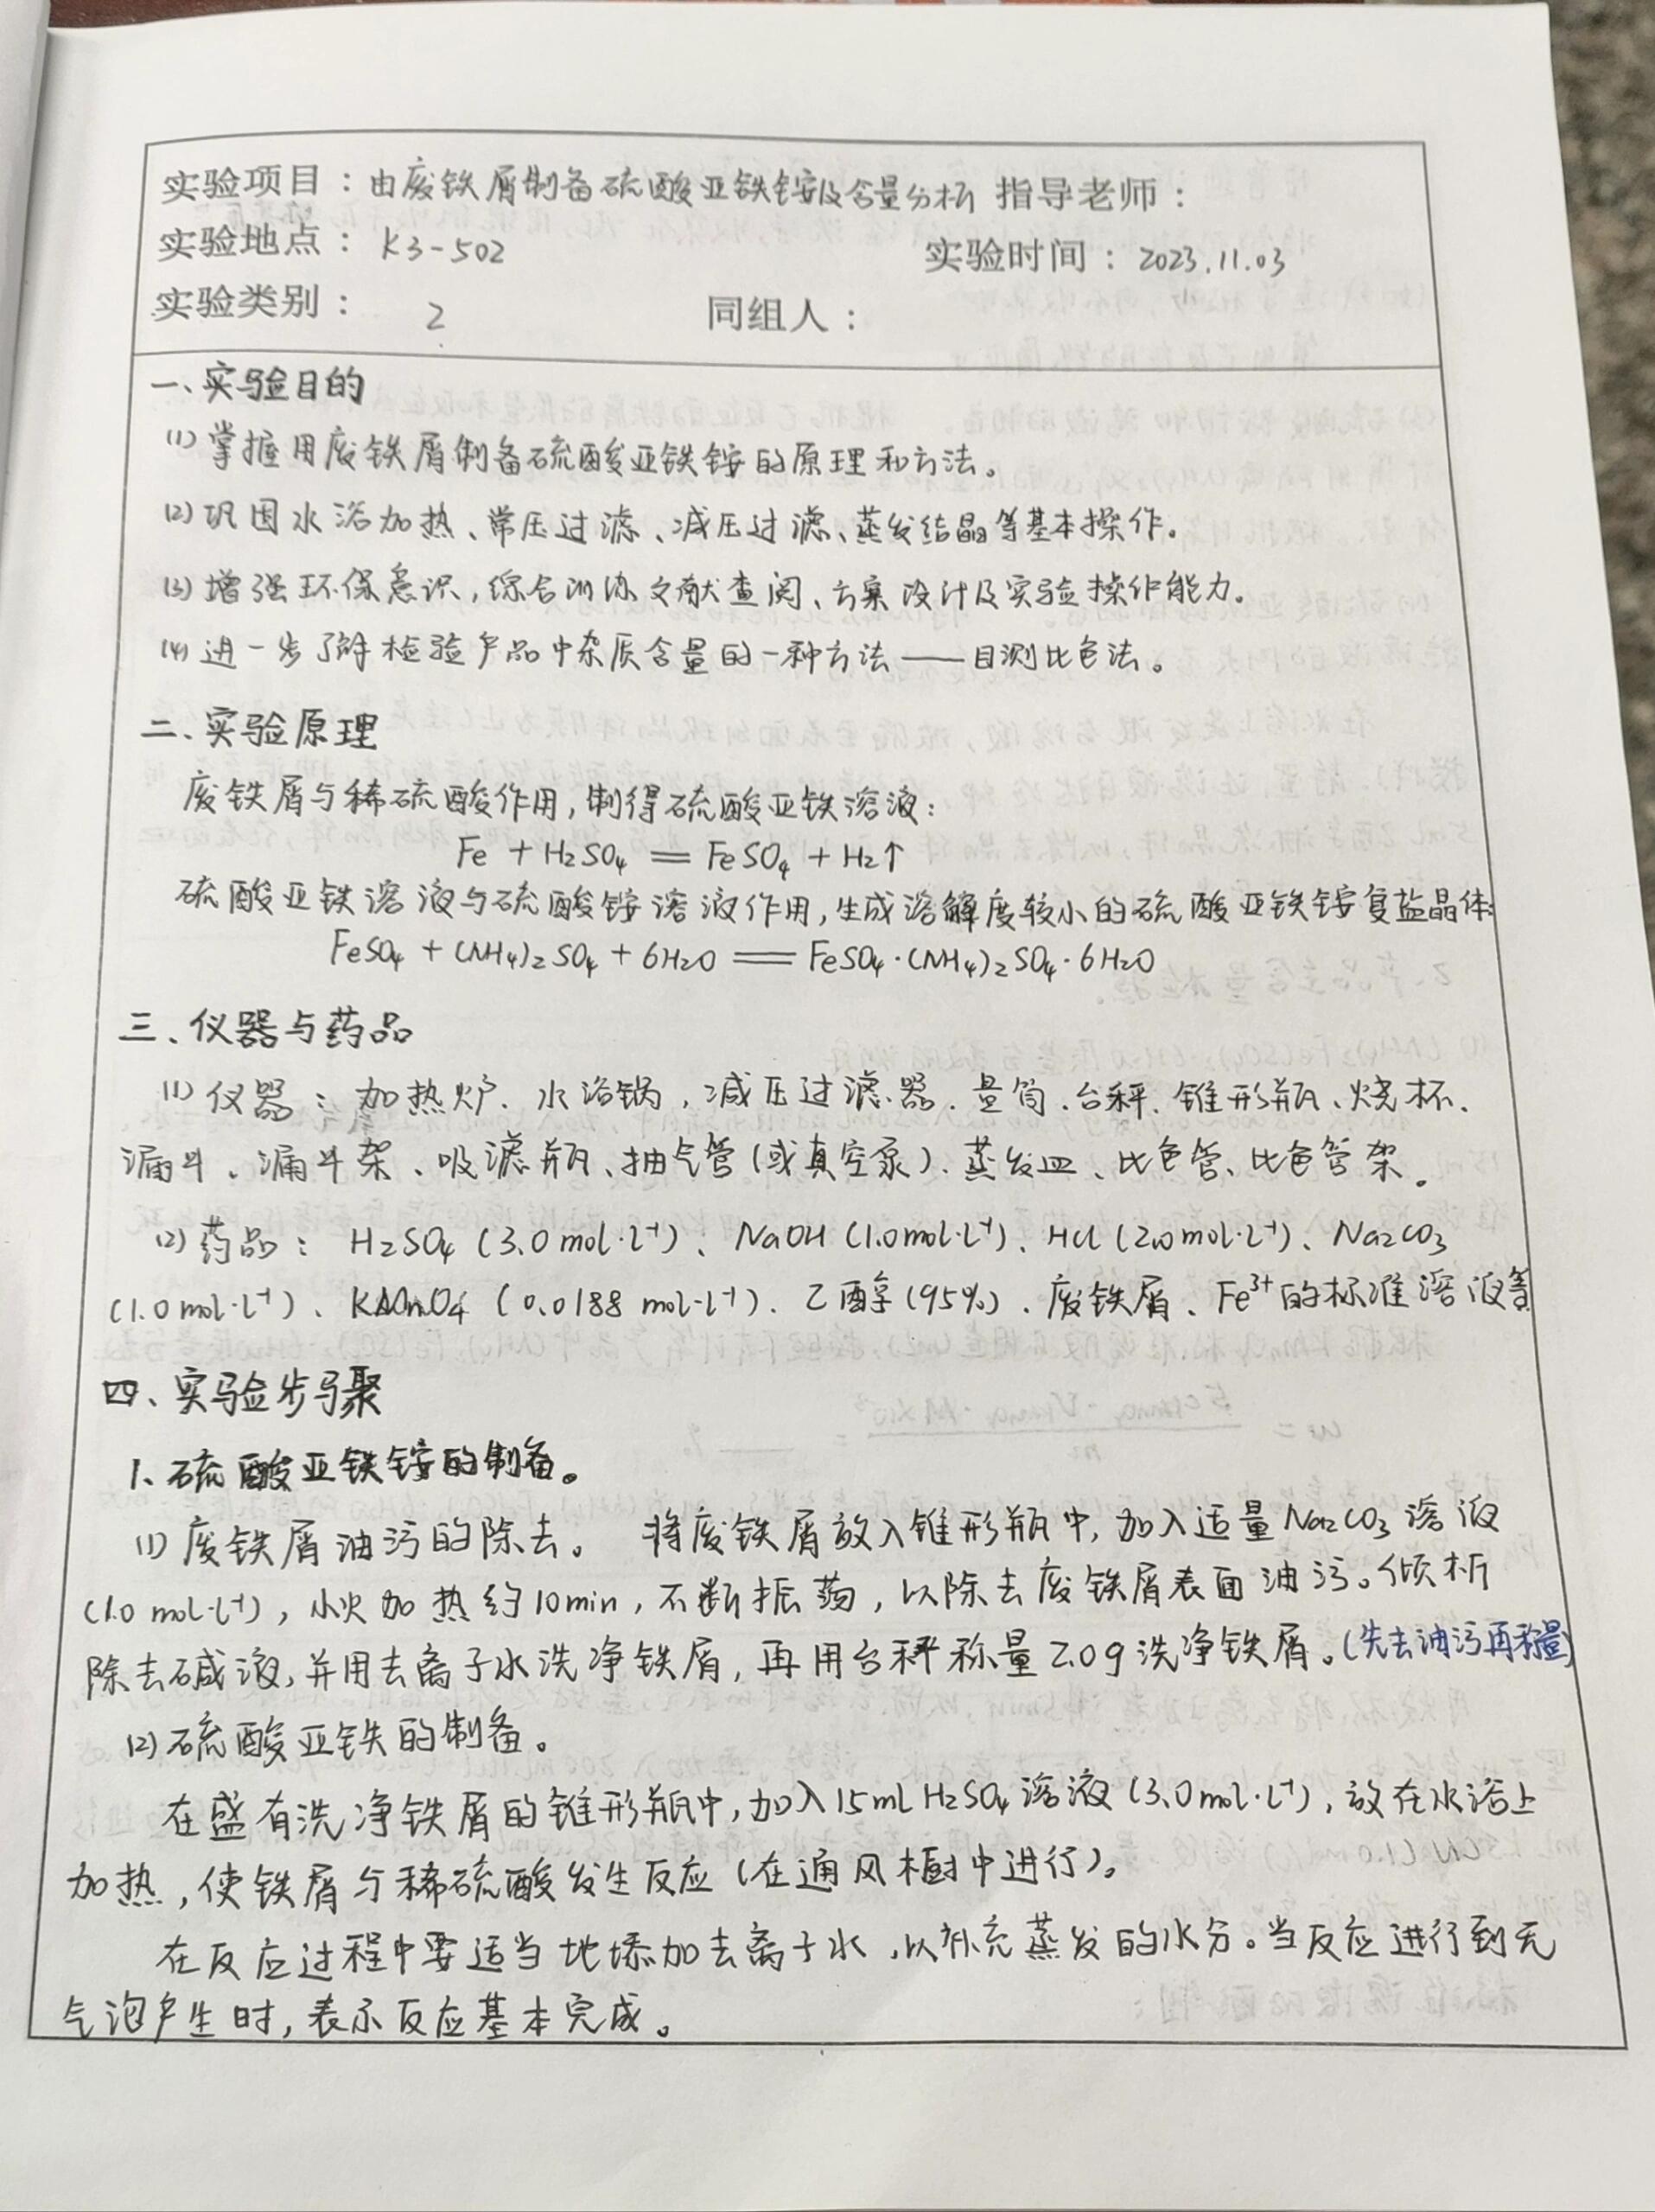 实验项目：由废铁屑制备硫酸亚铁铵及含量分析 指导老师：
实验地点：K3-502 实验时间：2023.11.03
实验类别：2 同组人：
一、实验目的
(1) 掌握用废铁屑制备硫酸亚铁铵的原理和方法。
(2) 巩固水浴加热、常压过滤、减压过滤、蒸发结晶等基本操作。
(3) 增强环保意识，综合训练文献查阅、方案设计及实验操作能力。
(4) 进一步了解检验产品中杂质含量的一种方法——目测比色法。
二、实验原理
废铁屑与稀硫酸作用，制得硫酸亚铁溶液：
Fe + H₂SO₄ = FeSO₄ + H₂↑
硫酸亚铁溶液与硫酸铵溶液作用，生成溶解度较小的硫酸亚铁铵复盐晶体：
FeSO₄ + (NH₄)₂SO₄ + 6H₂O == FeSO₄·(NH₄)₂SO₄·6H₂O
三、仪器与药品
(1) 仪器：加热炉、水浴锅，减压过滤器、量筒、台秤、锥形瓶、烧杯、
漏斗、漏斗架、吸滤瓶、抽气管（或真空泵）、蒸发皿、比色管、比色管架。
(2) 药品：H₂SO₄ (3.0mol·L⁻¹)、NaOH (1.0mol·L⁻¹)、HCl (2.0mol·L⁻¹)、Na₂CO₃
(1.0mol·L⁻¹)、KMnO₄ (0.0188 mol·L⁻¹)、乙醇(95%)、废铁屑、Fe³⁺的标准溶液等
四、实验步骤
1、硫酸亚铁铵的制备。
(1) 废铁屑油污的除去。 将废铁屑放入锥形瓶中，加入适量Na₂CO₃溶液
(1.0 mol·L⁻¹)，小火加热约10min，不断振荡，以除去废铁屑表面油污。倾析
除去碱液，并用去离子水洗净铁屑，再用台秤称量2.0g洗净铁屑。(先去油污再称量)
(2) 硫酸亚铁的制备。
在盛有洗净铁屑的锥形瓶中，加入15mL H₂SO₄溶液(3.0mol·L⁻¹)，放在水浴上
加热，使铁屑与稀硫酸发生反应（在通风橱中进行）。
在反应过程中要适当地添加去离子水，以补充蒸发的水分。当反应进行到无
气泡产生时，表示反应基本完成。